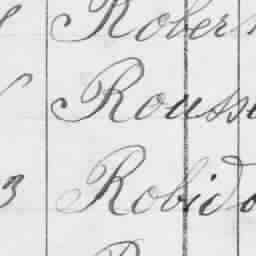 Rober
Rouss
3 Robido